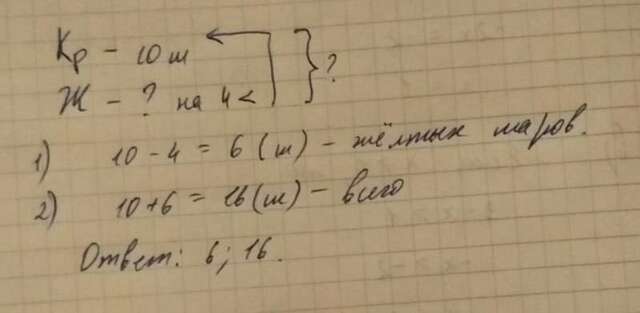 Кр – 10 ш
Ж – ? на 4 < ?
1) 10 - 4 = 6 (ш) – жёлтых шаров.
2) 10 + 6 = 16 (ш) – всего
Ответ: 6; 16.